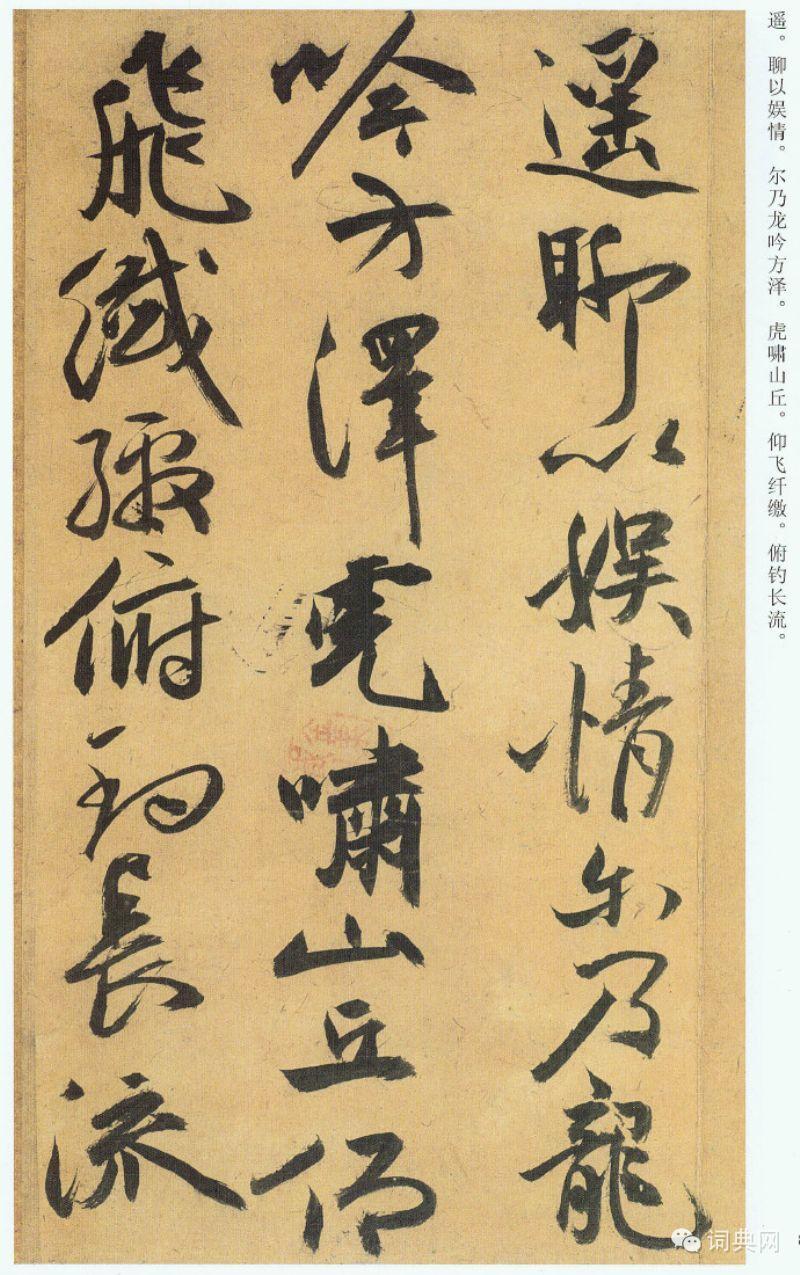 遥。聊以娱情。尔乃龙吟方泽。虎啸山丘。仰飞纤缴。俯钓长流。
遥聊以娱情尔乃龍
吟方澤虎嘯山丘仰
飛纖繳俯釣長流
词典网